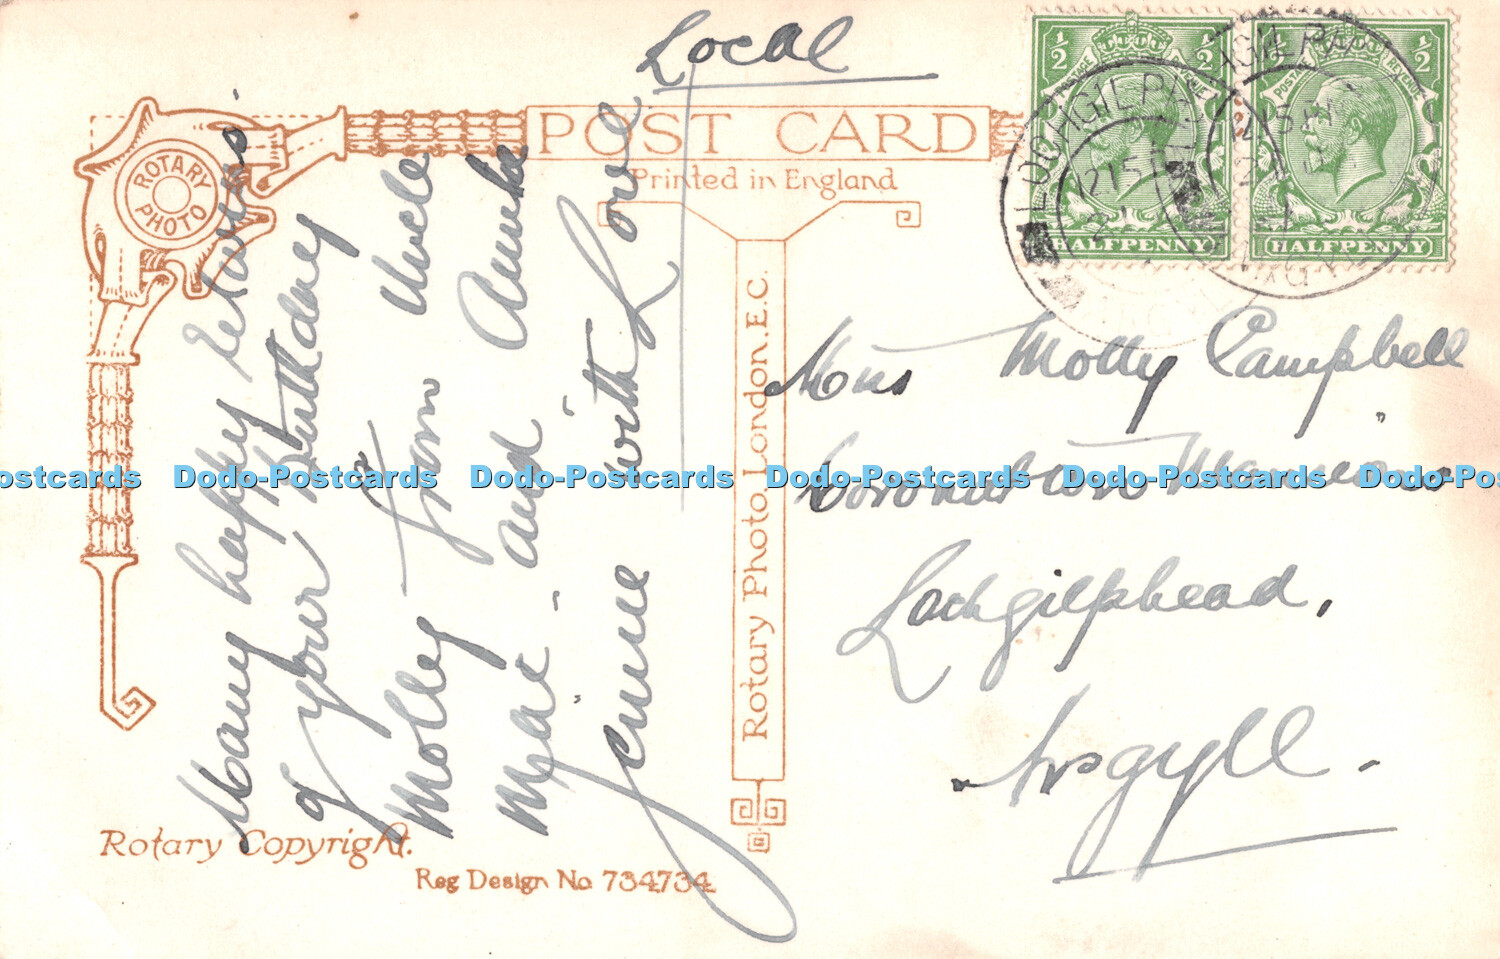 Local
POST CARD
Printed in England
ROTARY PHOTO
Many happy returns
of your Birthday
Molly from Uncle
and
with Love
Rotary Photo, London. E.C.
½ ½
POSTAGE REVENUE
HALFPENNY
½ ½
POSTAGE REVENUE
HALFPENNY
LOCHGILPHEAD
1215
Molly Campbell
Mansions
Lochgilphead,
Argyll.
Dodo-Postcards Dodo-Postcards Dodo-Postcards Dodo-Postcards Dodo-Postcards Dodo-Pos
Rotary Copyright.
Reg Design No 734734